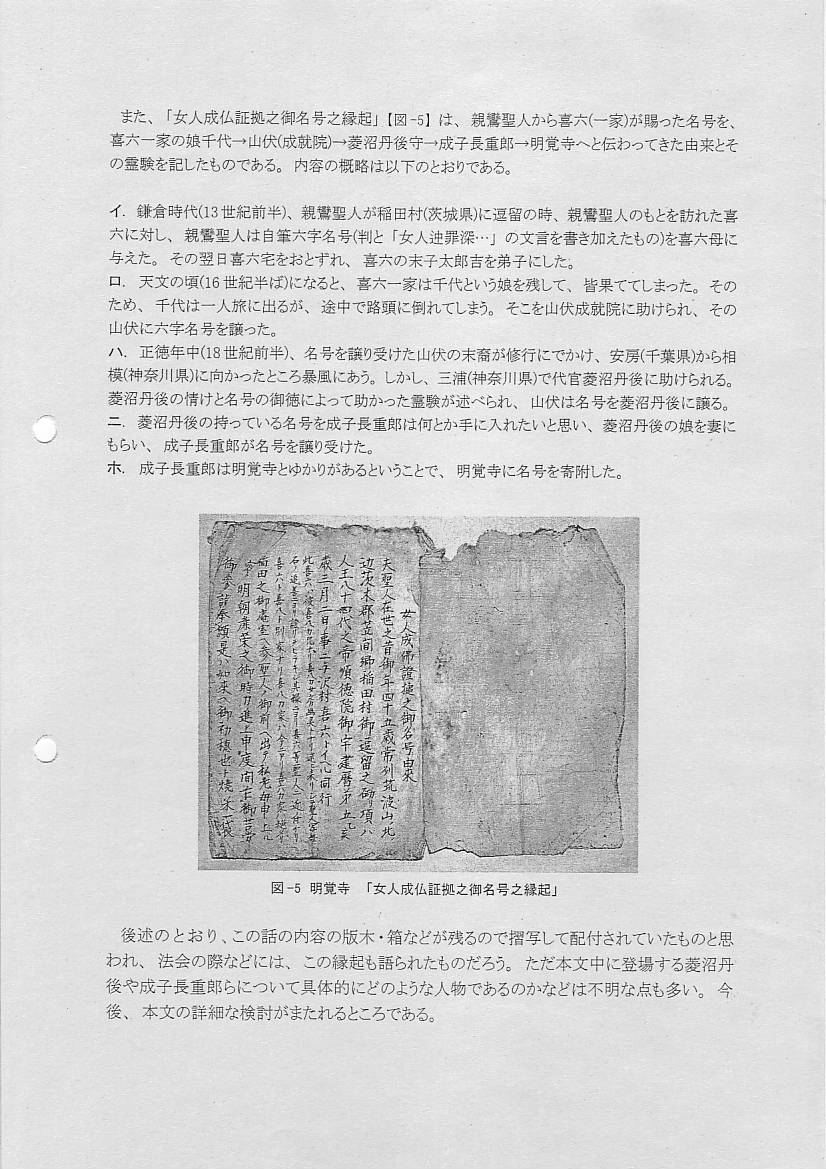 また、「女人成仏証拠之御名号之縁起」【図-5】は、親鸞聖人から喜六(一家)が賜った名号を、
喜六一家の娘千代→山伏(成就院)→菱沼丹後守→成子長重郎→明覚寺へと伝わってきた由来とそ
の霊験を記したものである。内容の概略は以下のとおりである。
イ．鎌倉時代(13世紀前半)、親鸞聖人が稲田村(茨城県)に逗留の時、親鸞聖人のもとを訪れた喜
六に対し、親鸞聖人は自筆六字名号(判と「女人迚罪深…」の文言を書き加えたもの)を喜六母に
与えた。その翌日喜六宅をおとずれ、喜六の末子太郎吉を弟子にした。
ロ．天文の頃(16世紀半ば)になると、喜六一家は千代という娘を残して、皆果ててしまった。その
ため、千代は一人旅に出るが、途中で路頭に倒れてしまう。そこを山伏成就院に助けられ、その
山伏に六字名号を譲った。
ハ．正徳年中(18世紀前半)、名号を譲り受けた山伏の末裔が修行にでかけ、安房(千葉県)から相
模(神奈川県)に向かったところ暴風にあう。しかし、三浦(神奈川県)で代官菱沼丹後に助けられる。
菱沼丹後の情けと名号の御徳によって助かった霊験が述べられ、山伏は名号を菱沼丹後に譲る。
ニ．菱沼丹後の持っている名号を成子長重郎は何とか手に入れたいと思い、菱沼丹後の娘を妻に
もらい、成子長重郎が名号を譲り受けた。
ホ．成子長重郎は明覚寺とゆかりがあるということで、明覚寺に名号を寄附した。
女人成佛證據之御名号由来
夫聖人在世之昔御年四十五歳常列筑波山北
辺茨木郡笠間郷稲田村御逗留之砌リ項ハ
人王八十四代之帝順徳院御宇建暦第五乙亥
歳三月二日事ニテ沢村喜六トイヘル同行
稲田之御庵室へ参聖人ノ御前へ出テ私老母申上ル
図-5 明覚寺 「女人成仏証拠之御名号之縁起」
後述のとおり、この話の内容の版木・箱などが残るので摺写して配付されていたものと思
われ、法会の際などには、この縁起も語られたものだろう。ただ本文中に登場する菱沼丹
後や成子長重郎らについて具体的にどのような人物であるのかなどは不明な点も多い。今
後、本文の詳細な検討がまたれるところである。